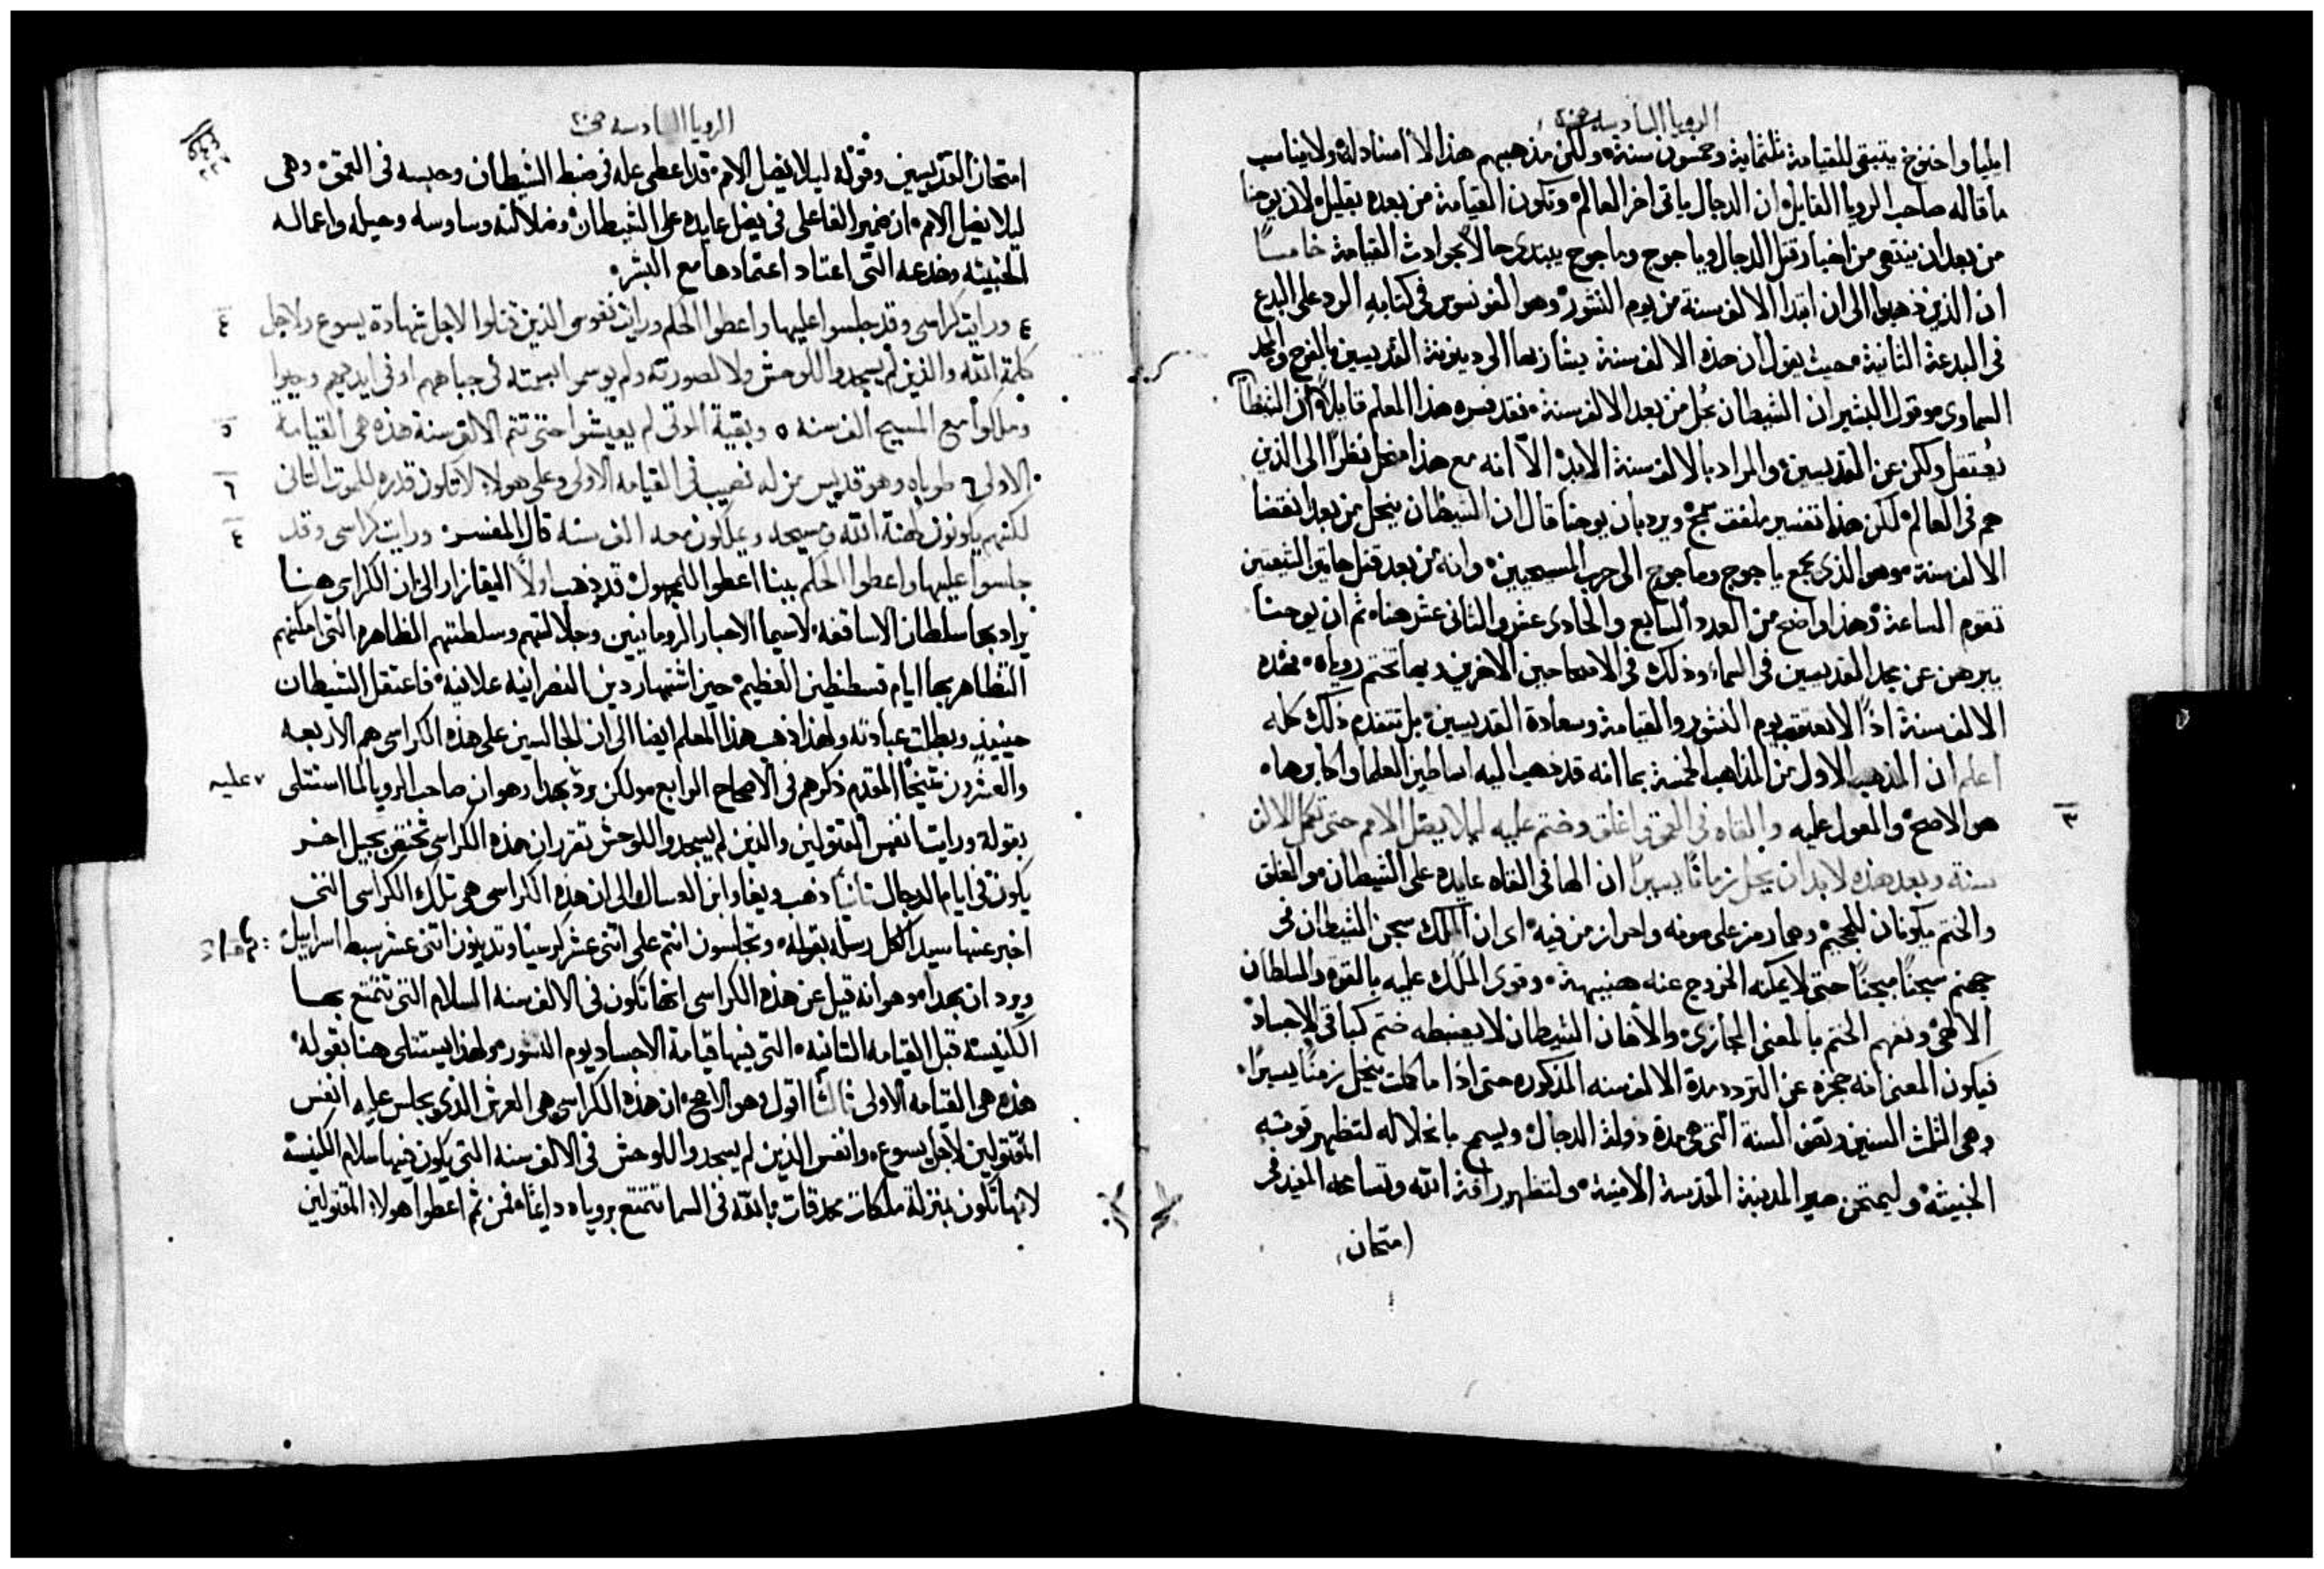 الرويا السادسه ص٢٠
ايليا واخنوخ يتبقى للقيامة ثلثماية وخمسون سنة ولكن مذهبهم هذا لا اسناد له ولا يناسب
ما قاله صاحب الرويا القايل ان الدجال ياتى اخر العالم وتكون القيامة من بعده بقليل لان يوحنا
من بعد ان ينتهى من اخبار قتل الدجال وياجوج وماجوج يبتدى حالاً بحوادث القيامة خامساً
ان الذين ذهبوا الى ان ابتدا الالف سنة من يوم النشور وهو الفونسوس فى كتابه الرد على البدع
فى البدعة الثانية حيث يقول ان هذه الالف سنة يشار بها الى دينونة القديسين بالفرح والمجد
السماوى وقول البشير ان الشيطان يُحل من بعد الالف سنة فقد فسره هذا المعلم قايلاً ان الشيطان
يُعتقل ولكن عن القديسين والمراد بالالف سنة الابد الا انه مع هذا منحل نظراً الى الذين
هم فى العالم لكن هذا تفسير ملفق سمج ويرد بان يوحنا قال ان الشيطان ينحل من بعد انقضا
الالف سنة وهو الذى يجمع ياجوج وماجوج الى حرب المسيحيين وانه من بعد قتل هاتين الشيعتين
تقوم الساعة وهذا واضح من العدد السابع والحادى عشر والثانى عشر هنا ثم ان يوحنا
يبرهن عن مجد القديسين فى السماء وذلك فى الاصحاحين الاخرين وبها تختم روياه فهذه
الالف سنة اذاً لا تعقب يوم النشور والقيامة وسعادة القديسين بل تتقدم ذلك كله
اعلم ان المذهب الاول من المذاهب الخمسة بما انه قد ذهب اليه اساطين العلما واكابرها
هو الاصح والمعول عليه والقاه فى العمق واغلق وختم عليه ليلا يضل الامم حتى تكمل الالف
٣
سنة وبعد هذه لابد ان يحل زماناً يسيراً ان الها فى القاه عايده على الشيطان والغلق
والختم يكونان للجحيم وهما رمز على صونه واحراز من فيه اى ان الملك سجن الشيطان فى
جهنم سجناً حتى لا يمكنه الخروج عنه وقوى الملك عليه بالقوه والسلطان
الالهى ونفهم الختم بالمعنى المجازى والا فان الشيطان لا يضبطه ختم كباقى الاجساد
فيكون المعنى انه حجزه عن التردد مدة الالف سنه المذكوره حتى اذا ما كملت ينحل زمناً يسيراً
وهى الثلث السنين ونصف السنة التى هى مدة دولة الدجال ويسمح بانحلاله لتظهر قوته
الخبيثة وليمتحن صبر المدينة المقدسة الامينة ولتظهر رافة الله وتساعه المفيد فى
امتحان
الرويا السادسه ص٢٠
امتحان القديسين وقوله ليلا يضل الامم قد اعطى عله فى ضبط الشيطان وحبسه فى العمق وهى
ليلا يضل الامم ان ضمير الفاعل فى يضل عايده على الشيطان وضلالته وساوسه وحيله واعماله
الخبيثه وخدعه التى اعتاد اعتمادها مع البشر
٤ ورايت كراسى وقد جلسوا عليها واعطوا الحكم ورايت نفوس الذين قتلوا لاجل شهادة يسوع ولاجل ٤
كلمة الله والذين لم يسجدوا للوحش ولا لصورته ولم يوسموا بسمته فى جباههم او فى ايديهم وحيوا
وملكوا مع المسيح الف سنه ٥ وبقية الموتى لم يعيشوا حتى تتم الالف سنة هذه هى القيامة ٥
الاولى ٦ طوباه وهو قديس من له نصيب فى القيامه الاولى وعلى هولاء لا تكون قدره للموت الثانى ٦
لكنهم يكونون كهنة الله ومسيحه ويملكون معه الف سنه قال المفسر ورايت كراسى وقد ٤
جلسوا عليها واعطوا الحكم ببنا اعطوا للمجهول قد ذهب اولاً اليقازار الى ان الكراسى هنا
يراد بها سلطان الاساقفه لاسيما الاحبار الرومانيين وجلالتهم وسلطنتهم الظاهره التى امكنهم
التظاهر بها ايام قسطنطين العظيم حين اشتهار دين النصرانيه علانية فاعتقل الشيطان
حينيذٍ وبطلت عبادته ولهذا ذهب هذا المعلم ايضا الى ان الجالسين على هذه الكراسى هم الاربعه
والعشرون شيخاً المقدم ذكرهم فى الاصحاح الرابع ولكن يرد بهذا وهو ان صاحب الرويا لما استتلى
بقوله ورايت انفس المقتولين والذين لم يسجدوا للوحش تقرر ان هذه الكراسى تختص بجيل اخر
يكون فى ايام الدجال ثانياً ذهب ويغا وابن العسال الى ان هذه الكراسى هى تلك الكراسى التى
اخبر عنها سيد الكل رسله بقوله وتجلسون انتم على اثنى عشر كرسياً وتدينون اثنى عشر سبط اسراييل
ويرد ان بهذا وهو انه قيل عن هذه الكراسى انها تكون فى الالف سنه السلام التى تتمتع بها
الكنيسة قبل القيامه الثانيه التى فيها قيامة الاجساد يوم النشور ولهذا يستتلى هنا بقوله
هذه هى القيامه الاولى ثالثاً اقول وهو الاصح ان هذه الكراسى هى العرش الذى يجلس عليه انفس
المقتولين لاجل يسوع وانفس الذين لم يسجدوا للوحش فى الالف سنه التى يكون فيها سلام الكنيسة
لانها تكون بمنزلة ملكات محدقات بالله فى السما تتمتع بروياه دايماً فمن ثم اعطوا هولاء المقتولين